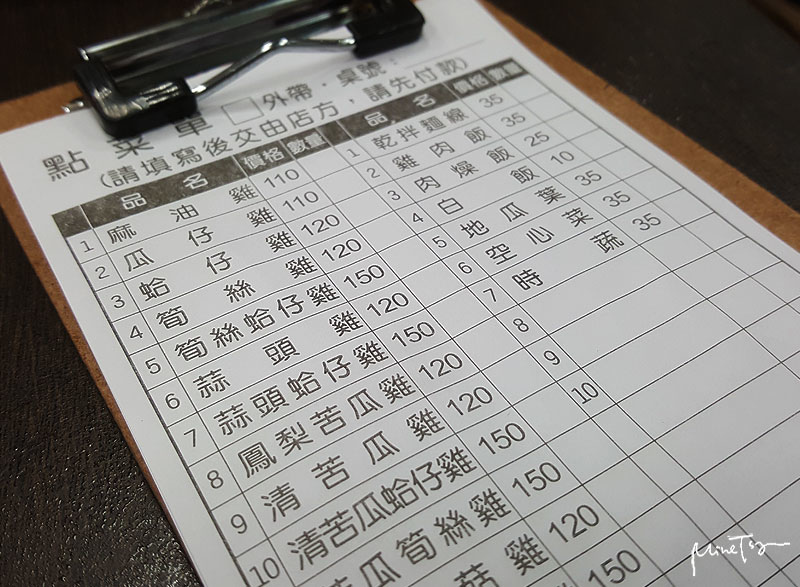 點菜單 □外帶．桌號：
(請填寫後交由店方，請先付款)
品名 價格 數量
1 麻油雞 110
2 瓜仔雞 110
3 蛤仔雞 120
4 筍絲雞 120
5 筍絲蛤仔雞 150
6 蒜頭雞 120
7 蒜頭蛤仔雞 150
8 鳳梨苦瓜雞 120
9 清苦瓜雞 120
10 清苦瓜蛤仔雞 150
瓜筍絲雞 150
菇雞 120
150
品名 價格 數量
1 乾拌麵線 35
2 雞肉飯 35
3 肉燥飯 25
4 白飯 10
5 地瓜葉 35
6 空心菜 35
7 時蔬 35
8
9
10